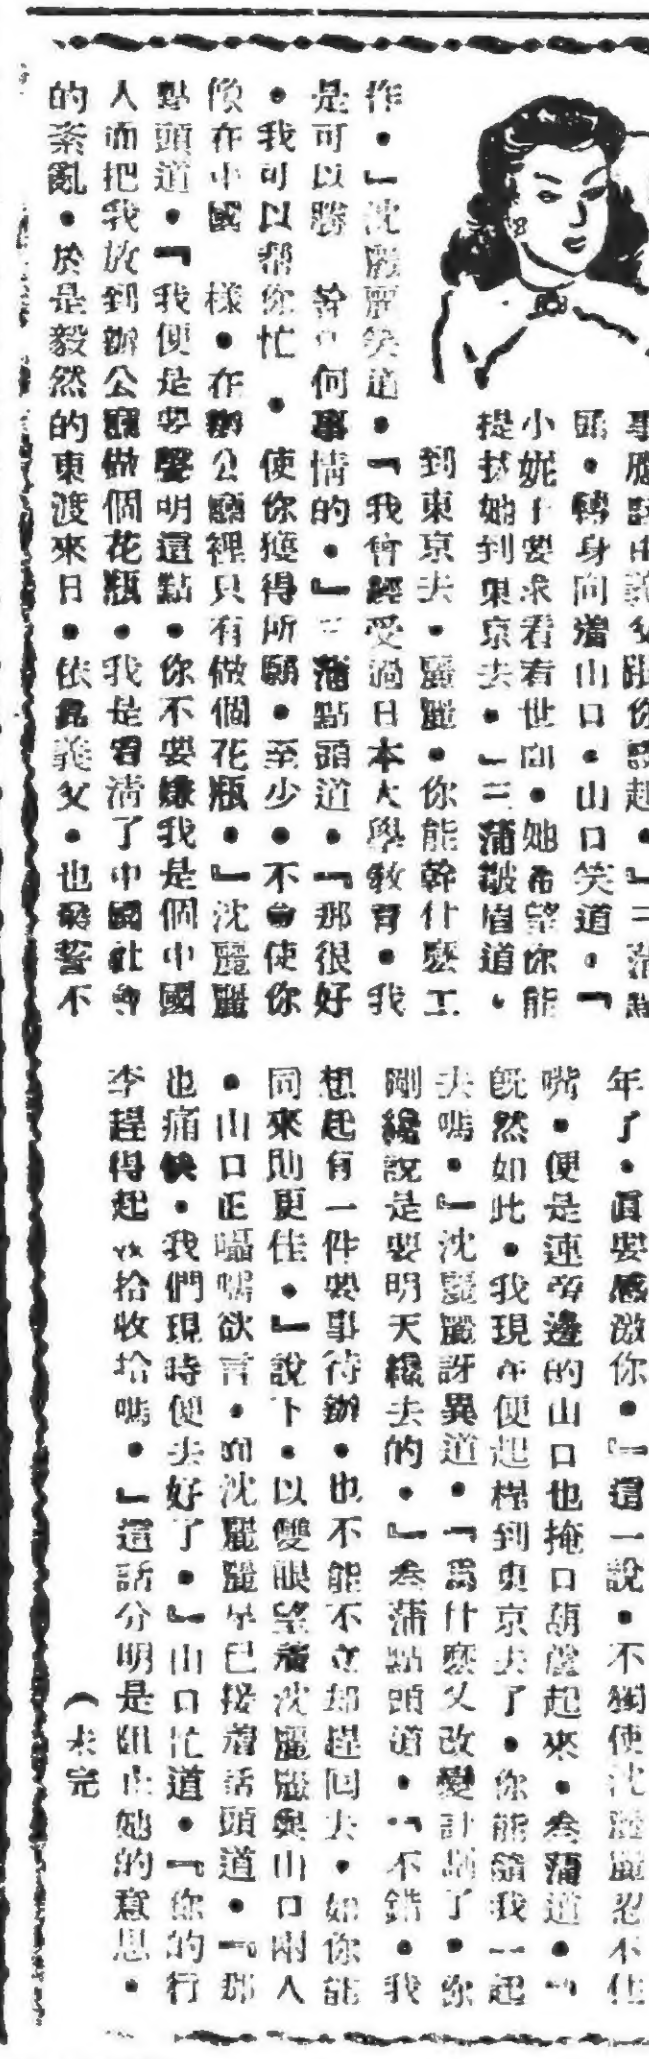 事應該由義父跟你說起・』三蒲點
頭・轉身向着山口・山口笑道・『
小妮子要求看看世面・她希望你能
提拔她到東京去・』三蒲皺眉道・
到東京去・麗麗・你能幹什麽工
作・』沈麗麗笑道・『我曾經受過日本大學敎育・我
是可以勝 幹 何事情的・』三蒲點頭道・『那很好
・我可以幫你忙・使你獲得所願・至少・不會使你
像在中國 樣・在辦公廳裡只有做個花瓶・』沈麗麗
點頭道・『我便是要聲明這點・你不要嫌我是個中國
人而把我放到辦公廳做個花瓶・我是看清了中國社會
的紊亂・於是毅然的東渡來日・依爲義父・也發誓不
年了・眞要感激你・』這一說・不獨使沈麗麗忍不住
嘴・便是連旁邊的山口也掩口葫蘆起來・叁蒲道・『
旣然如此・我現在便起程到東京去了・你能隨我一起
去嗎・』沈麗麗訝異道・『爲什麽又改變計劃了・你
剛纔說是要明天纔去的・』叁蒲點頭道・『不錯・我
想起有一件要事待辦・也不能不立却趕回去・如你能
同來則更佳・』說下・以雙眼望着沈麗麗與山口兩人
・山口正囁嚅欲言・而沈麗麗早已接着話頭道・『那
也痛快・我們現時便去好了・』山口忙道・『你的行
李趕得起收拾收拾嗎・』這話分明是阻止她的意思・
（未完